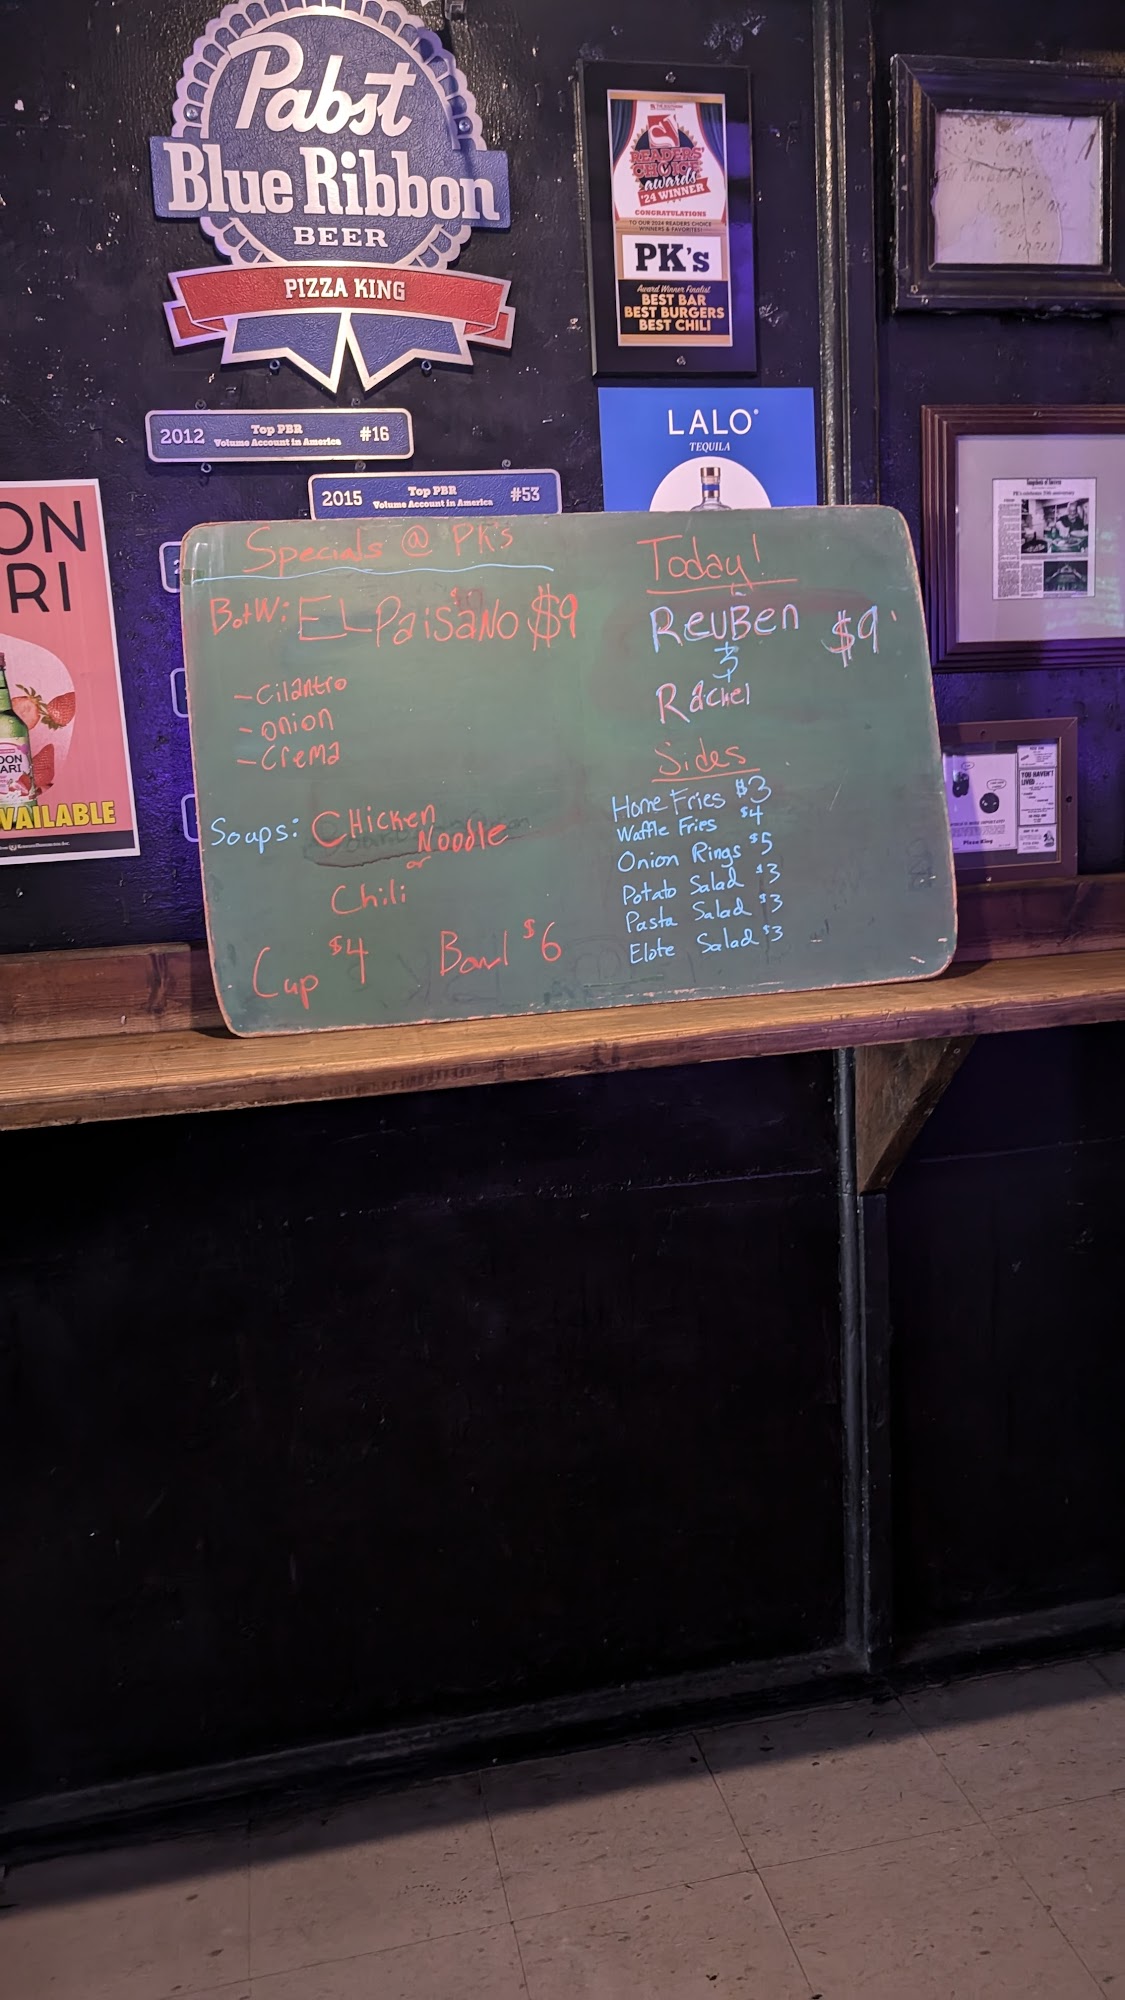 Pabst
Blue Ribbon
BEER
PIZZA KING
2012 Top PBR Volume Account in America #16
2015 Top PBR Volume Account in America #53
READERS'
CHOICE
awards
'24 WINNER
CONGRATULATIONS
TO OUR 2024 READERS CHOICE
WINNERS & FAVORITES!
PK's
Award Winner Finalist
BEST BAR
BEST BURGERS
BEST CHILI
LALO
TEQUILA
ON
RI
VAILABLE
Specials @ PK's
BotW: EL PaisaNo $9
- Cilantro
- onion
- Crema
Soups: CHicken
Noodle
or
Chili
Cup $4 Bowl $6
Today!
ReuBen $9
&
Rachel
Sides
Home Fries $3
Waffle Fries $4
Onion Rings $5
Potato Salad $3
Pasta Salad $3
Elote Salad $3
YOU HAVEN'T
LIVED
Pizza King